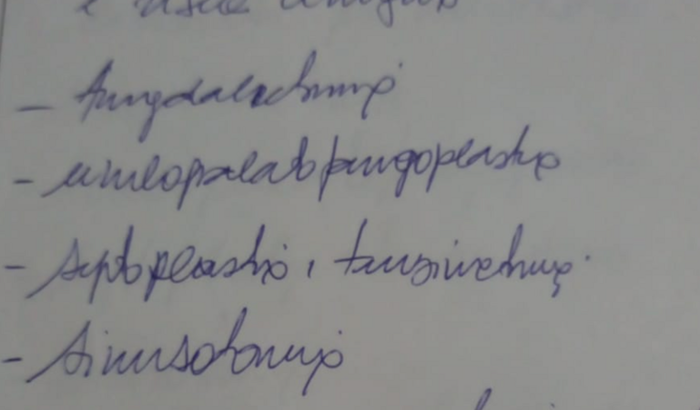 - Amigdalectomia
- uvulopalatofaringoplastia
- septoplastia, turbinectomia
- Sinusotomia